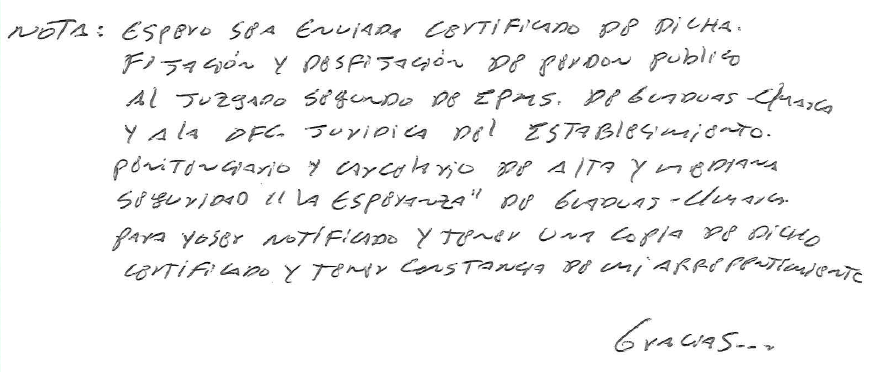 NOTA: ESPERO SEA ENVIADA CERTIFICADO DE DICHA.
FIJACIÓN Y DESFIJACIÓN DE PERDON PUBLICO
AL JUZGADO SEGUNDO DE EPMS. DE GUADUAS-C/MARCA
Y A LA OFC. JURIDICA DEL ESTABLECIMIENTO.
PENITENCIARIO Y CARCELARIO DE ALTA Y MEDIANA
SEGURIDAD "LA ESPERANZA" DE GUADUAS-C/MARCA.
PARA YO SER NOTIFICADO Y TENER UNA COPIA DE DICHO
CERTIFICADO Y TENER CONSTANCIA DE MI ARREPENTIMIENTO
GRACIAS...